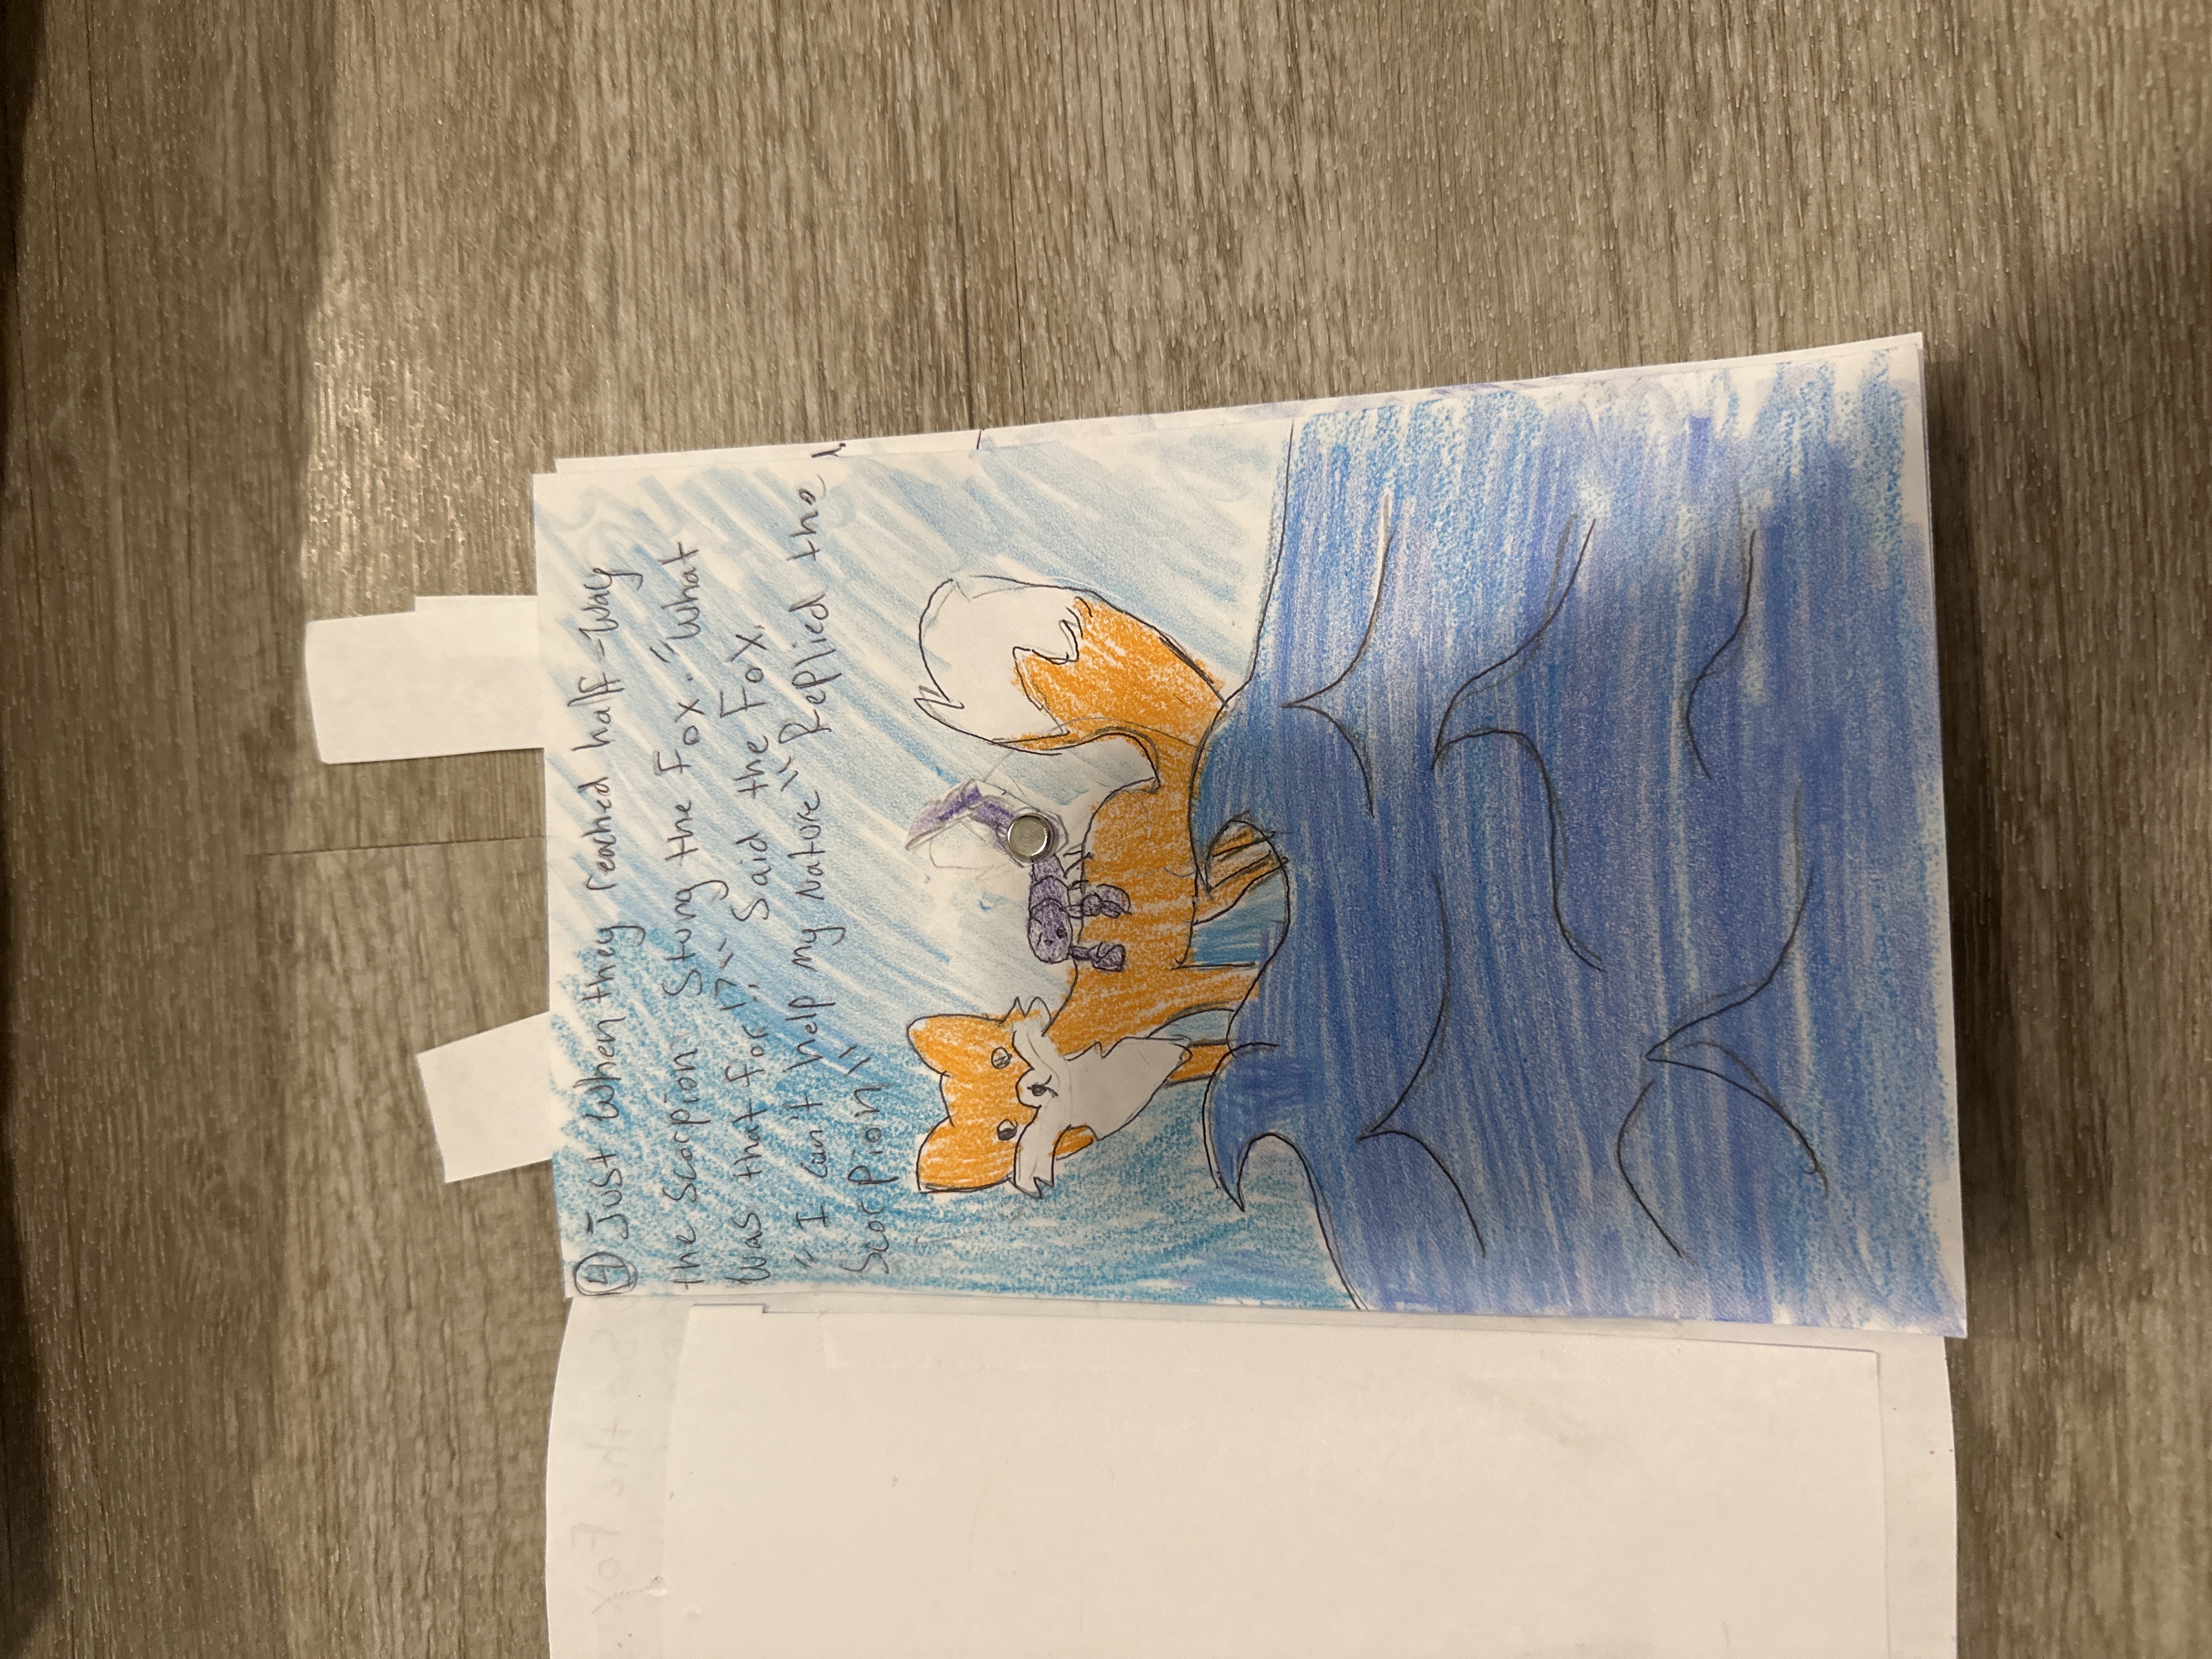 ④ Just when they reached half-way
the Scorpion Stung the Fox. "What
was that for!?" Said the Fox.
"I can't help my Nature" Replied the
Scorpion"
So the Fox